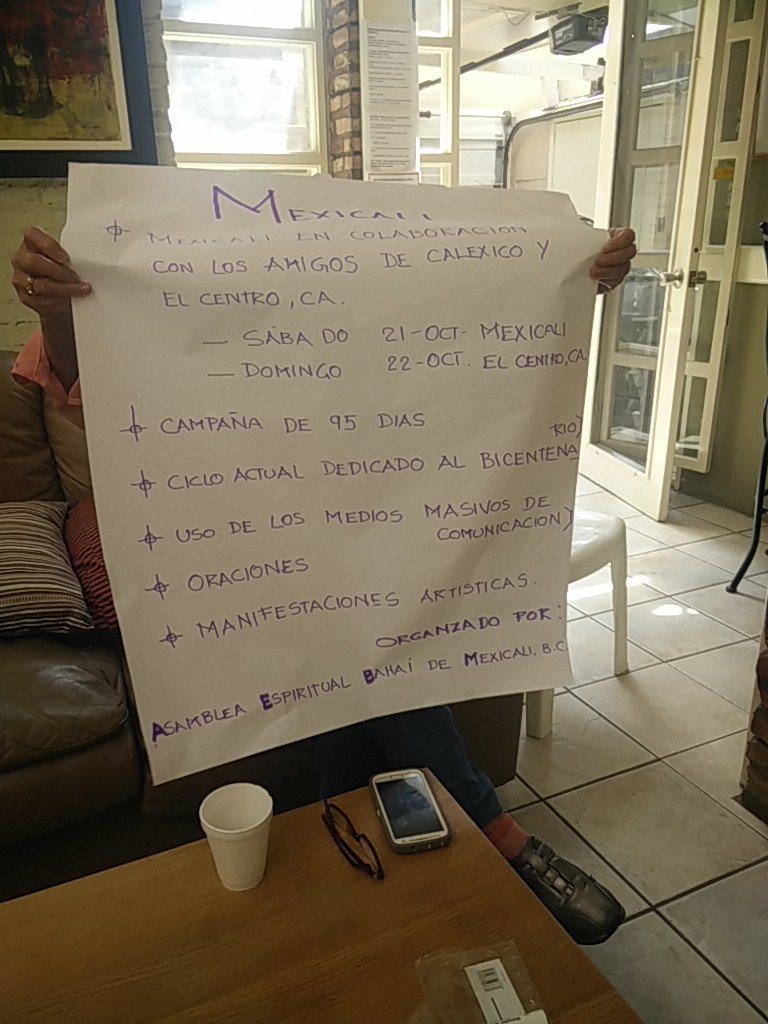 MEXICALI
MEXICALI EN COLABORACION
CON LOS AMIGOS DE CALEXICO Y
EL CENTRO, CA.
— SÁBADO 21-OCT. MEXICALI
— DOMINGO 22-OCT. EL CENTRO, CA.
CAMPAÑA DE 95 DIAS
CICLO ACTUAL DEDICADO AL BICENTENA
RIO)
USO DE LOS MEDIOS MASIVOS DE
COMUNICACION)
ORACIONES
MANIFESTACIONES ARTISTICAS.
ORGANZADO POR:
ASAMBLEA ESPIRITUAL BAHAÍ DE MEXICALI, B.C.